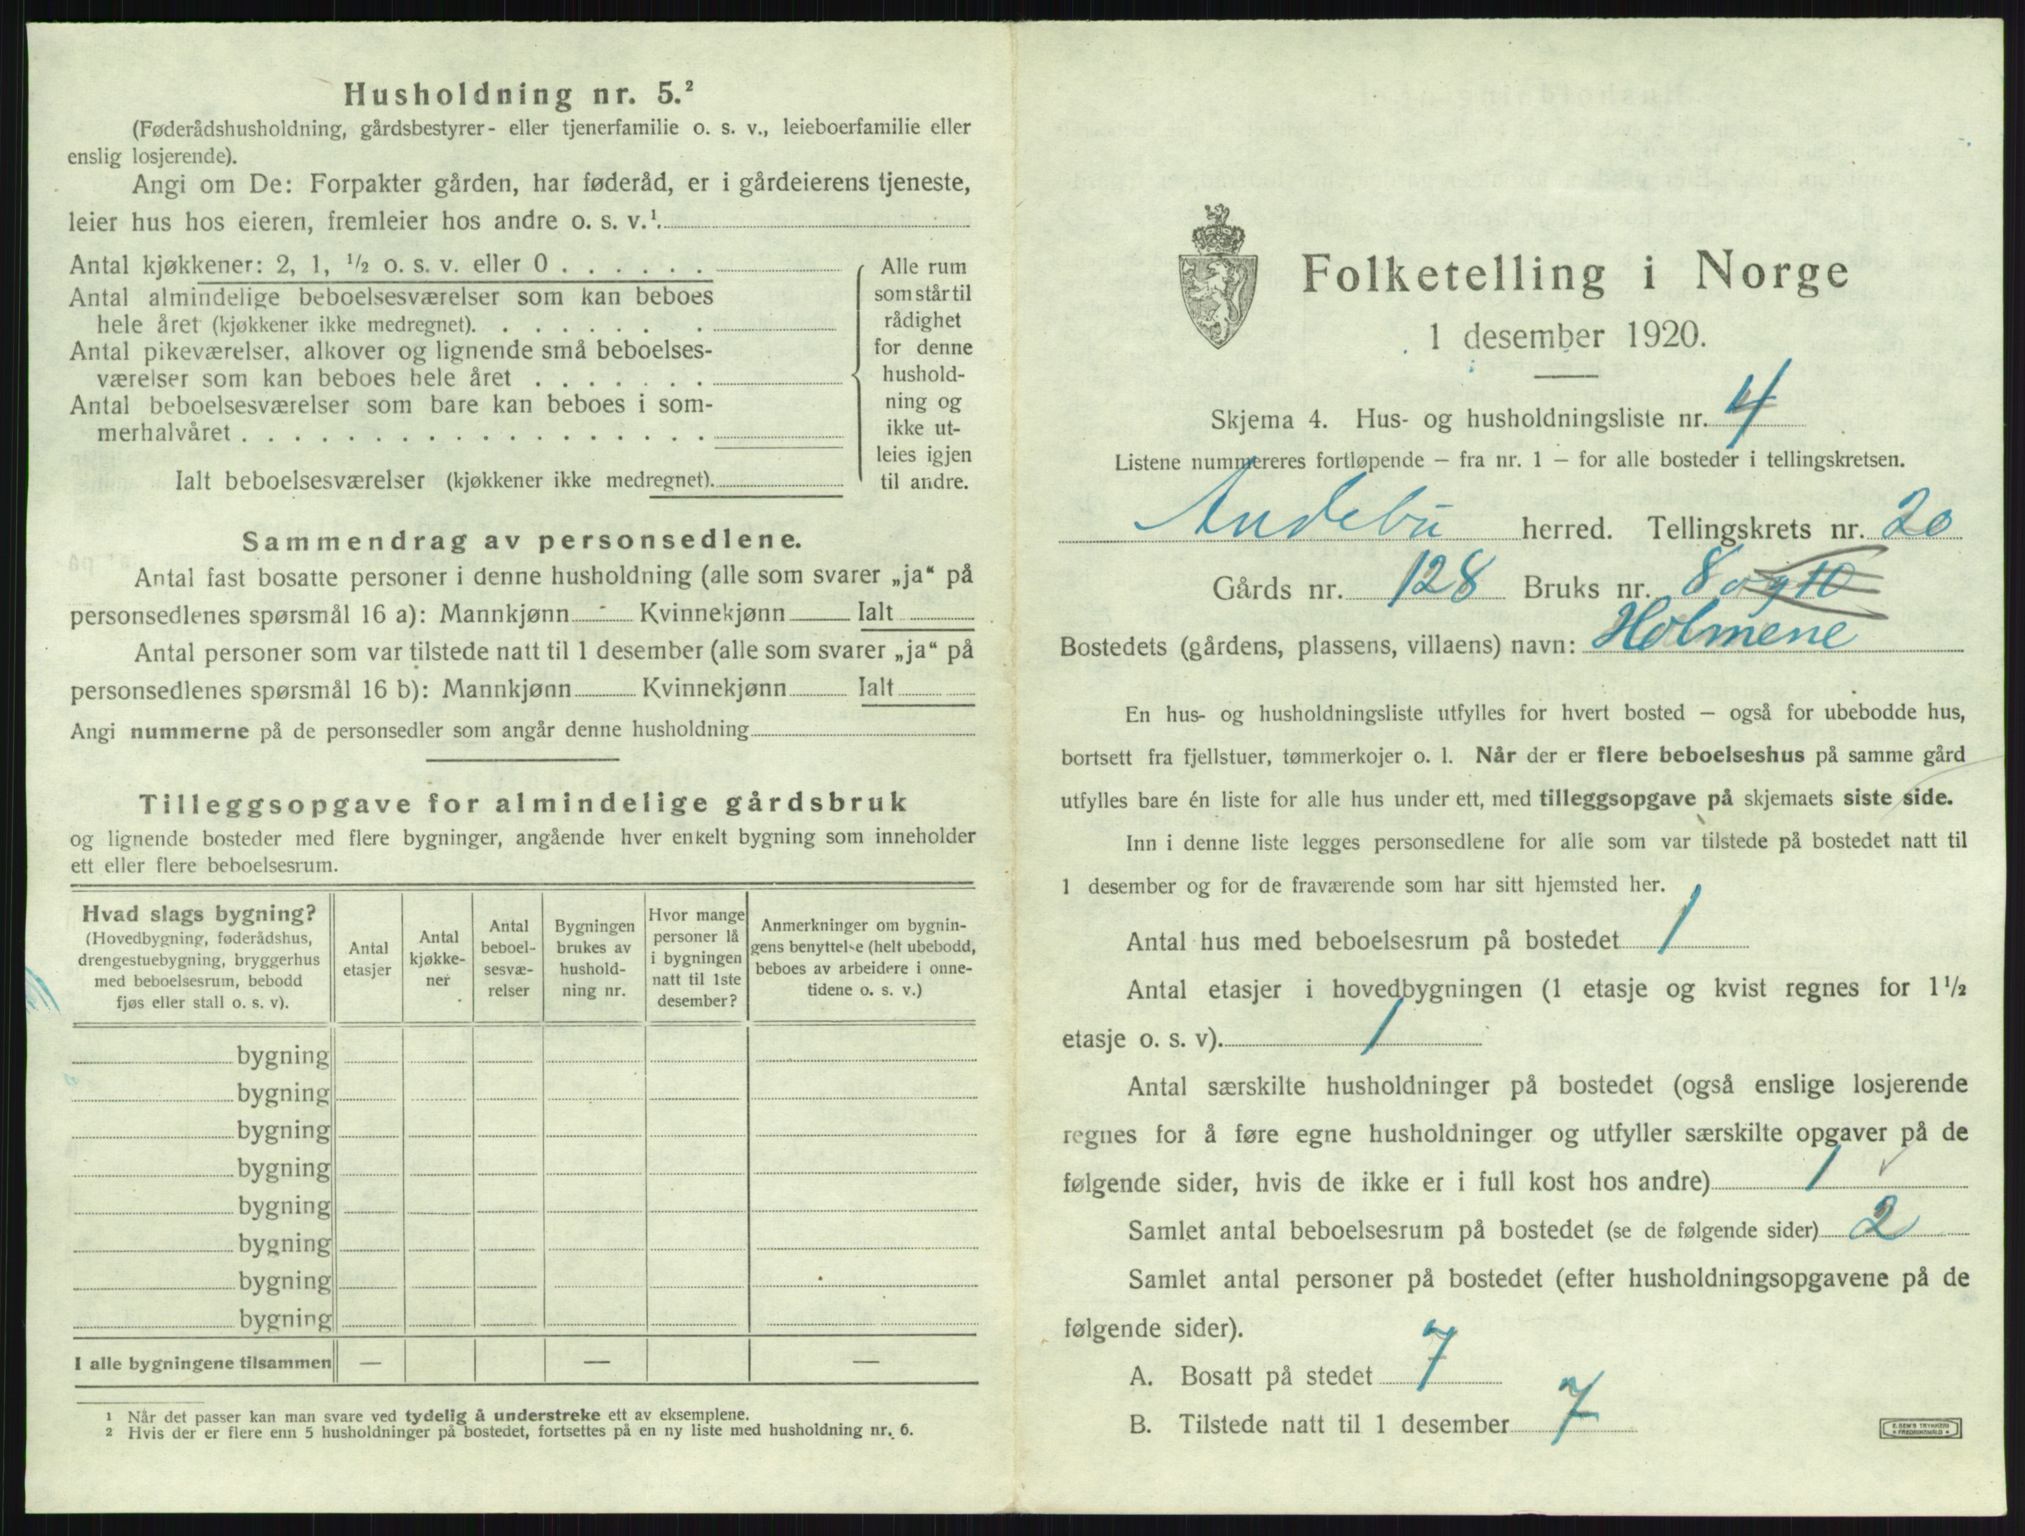 Husholdning nr. 5.²
(Føderådshusholdning, gårdsbestyrer- eller tjenerfamilie o. s. v., leieboerfamilie eller
enslig losjerende).
Angi om De: Forpakter gården, har føderåd, er i gårdeierens tjeneste,
leier hus hos eieren, fremleier hos andre o. s. v.¹.
Antal kjøkkener: 2, 1, ¹/₂ o. s. v. eller 0 . . . . . .
Antal almindelige beboelsesværelser som kan beboes
hele året (kjøkkener ikke medregnet). . . . . . . .
Antal pikeværelser, alkover og lignende små beboelses-
værelser som kan beboes hele året . . . . . . .
Antal beboelsesværelser som bare kan beboes i som-
merhalvåret . . . . . . . . . . . . . . . . . .
Ialt beboelsesværelser (kjøkkener ikke medregnet).
Alle rum
som står til
rådighet
for denne
hushold-
ning og
ikke ut-
leies igjen
til andre.
Sammendrag av personsedlene.
Antal fast bosatte personer i denne husholdning (alle som svarer „ja“ på
personsedlenes spørsmål 16 a): Mannkjønn Kvinnekjønn Ialt
Antal personer som var tilstede natt til 1 desember (alle som svarer „ja“ på
personsedlenes spørsmål 16 b): Mannkjønn Kvinnekjønn Ialt
Angi nummerne på de personsedler som angår denne husholdning
Tilleggsopgave for almindelige gårdsbruk
og lignende bosteder med flere bygninger, angående hver enkelt bygning som inneholder
ett eller flere beboelsesrum.
Hvad slags bygning?
(Hovedbygning, føderådshus,
drengestuebygning, bryggerhus
med beboelsesrum, bebodd
fjøs eller stall o. s. v).
Antal
etasjer
Antal
kjøkke-
ner
Antal
beboel-
sesvæ-
relser
Bygningen
brukes av
hushold-
ning nr.
Hvor mange
personer lå
i bygningen
natt til 1ste
desember?
Anmerkninger om bygnin-
gens benyttelse (helt ubebodd,
beboes av arbeidere i onne-
tidene o. s. v.)
bygning
bygning
bygning
bygning
bygning
bygning
bygning
bygning
I alle bygningene tilsammen — — —
1 Når det passer kan man svare ved tydelig å understreke ett av eksemplene.
2 Hvis der er flere enn 5 husholdninger på bostedet, fortsettes på en ny liste med husholdning nr. 6.
Folketelling i Norge
1 desember 1920.
Skjema 4. Hus- og husholdningsliste nr. 4
Listene nummereres fortløpende – fra nr. 1 – for alle bosteder i tellingskretsen.
Andebu herred. Tellingskrets nr. 20
Gårds nr. 128 Bruks nr. 8 og 10
Bostedets (gårdens, plassens, villaens) navn: Holmene
En hus- og husholdningsliste utfylles for hvert bosted – også for ubebodde hus,
bortsett fra fjellstuer, tømmerkojer o. l. Når der er flere beboelseshus på samme gård
utfylles bare én liste for alle hus under ett, med tilleggsopgave på skjemaets siste side.
Inn i denne liste legges personsedlene for alle som var tilstede på bostedet natt til
1 desember og for de fraværende som har sitt hjemsted her.
Antal hus med beboelsesrum på bostedet 1
Antal etasjer i hovedbygningen (1 etasje og kvist regnes for 1 ¹/₂
etasje o. s. v). 1
Antal særskilte husholdninger på bostedet (også enslige losjerende
regnes for å føre egne husholdninger og utfyller særskilte opgaver på de
følgende sider, hvis de ikke er i full kost hos andre) 1
Samlet antal beboelsesrum på bostedet (se de følgende sider) 2
Samlet antal personer på bostedet (efter husholdningsopgavene på de
følgende sider).
A. Bosatt på stedet 7
B. Tilstede natt til 1 desember 7